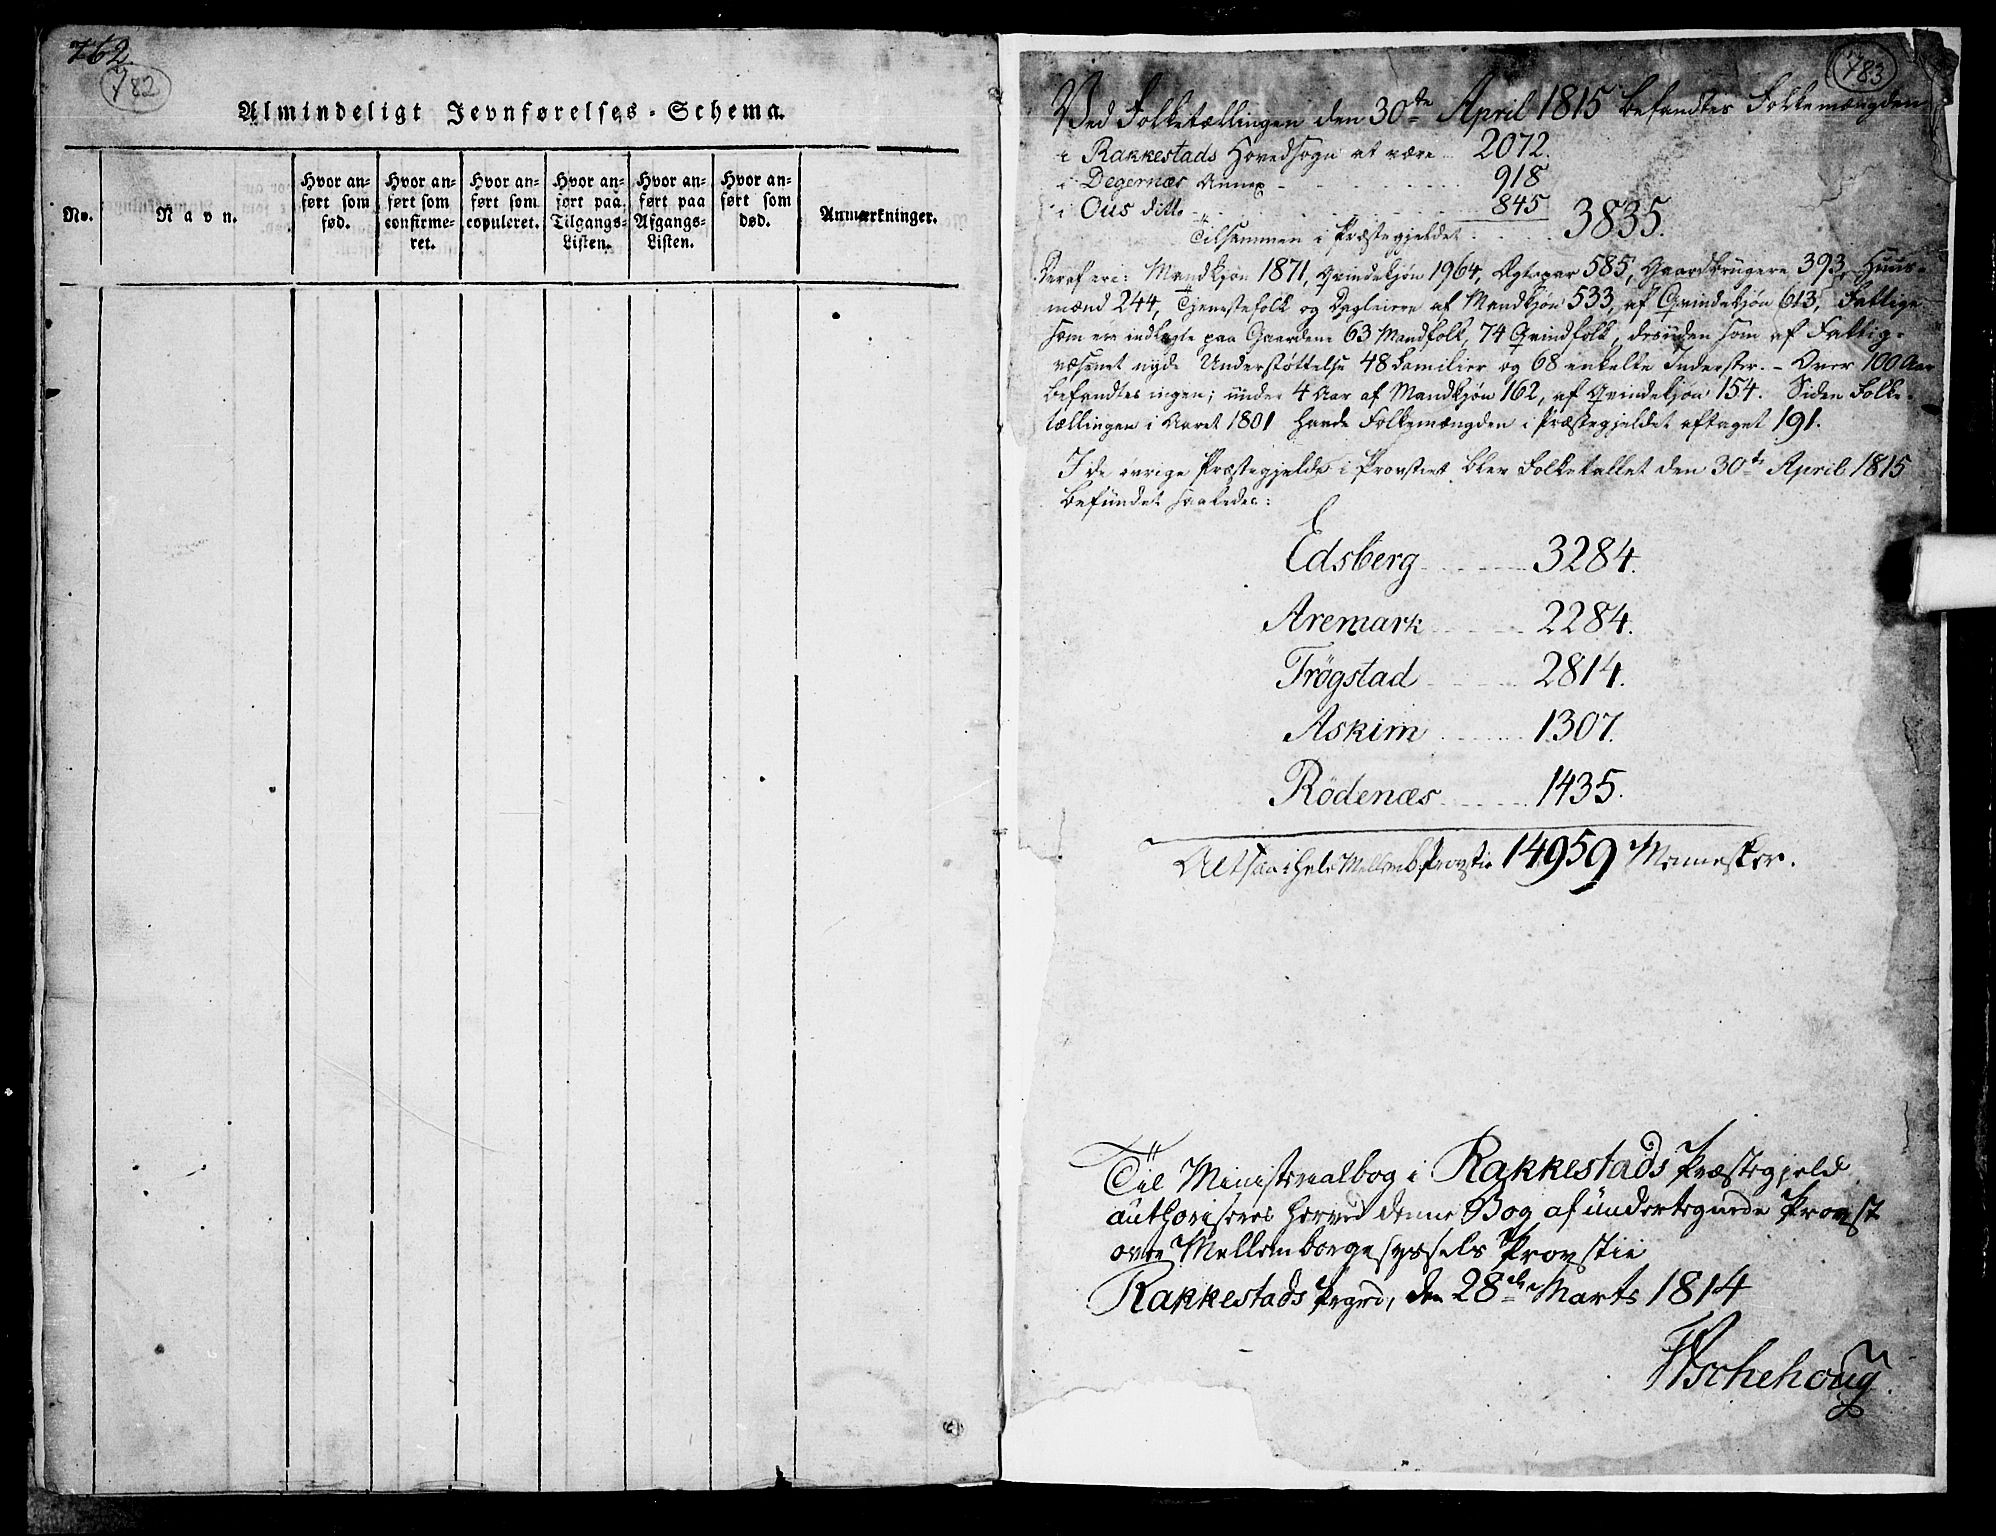 762.
782
Almindeligt Jevnførelses-Schema.
No.
Navn.
Hvor an-
ført som
fød.
Hvor an-
ført som
confirme-
ret.
Hvor an-
ført som
copuleret.
Hvor an-
ført paa
Tilgangs-
Listen.
Hvor an-
ført paa
Afgangs-
Listen.
Hvor an-
ført som
død.
Anmærkninger.
783
Ved Folketællingen den 30te April 1815 befandtes Folkemængden
i Rakkestads Hovedsogn at være 2072.
i Degernæs Annex 918
i Ous ditto 845
Tilsammen i Præstegjeldet 3835.
Deraf ere: Mandkjøn 1871, Qvindekjøn 1964, Ægtepar 585, Gaardbrugere 393, Huus-
mænd 244, Tjenestefolk og Dagleiere af Mandkjøn 533, af Qvindekjøn 613, Fattige
som ere indlagte paa Gaardene 63 Mandfolk, 74 Qvindfolk, desuden som af Fattig-
væsenet nyde Understøttelse 48 Familier og 68 enkelte Inderster. - Over 100 Aar
befandtes ingen; under 4 Aar af Mandkjøn 162, af Qvindekjøn 154. Siden Folke-
tællingen i Aaret 1801 havde Folkemængden i Præstegjeldet aftaget 191.
I de øvrige Præstegjelde i Provstiet blev Folketallet den 30te April 1815
befundet saaledes:
Edsberg 3284.
Aremark 2284.
Trögstad 2814.
Askim 1307.
Rödenæs 1435.
Altsaa i hele Mellemb. Provstie 14959 Mennesker.
Til Ministerialbog i Rakkestads Præstegjeld
authoriseres herved denne Bog af undertegnede Provst
over Mellemborgesyssels Provstie
Rakkestads Prgrd, den 28de Marts 1814
Schehoug